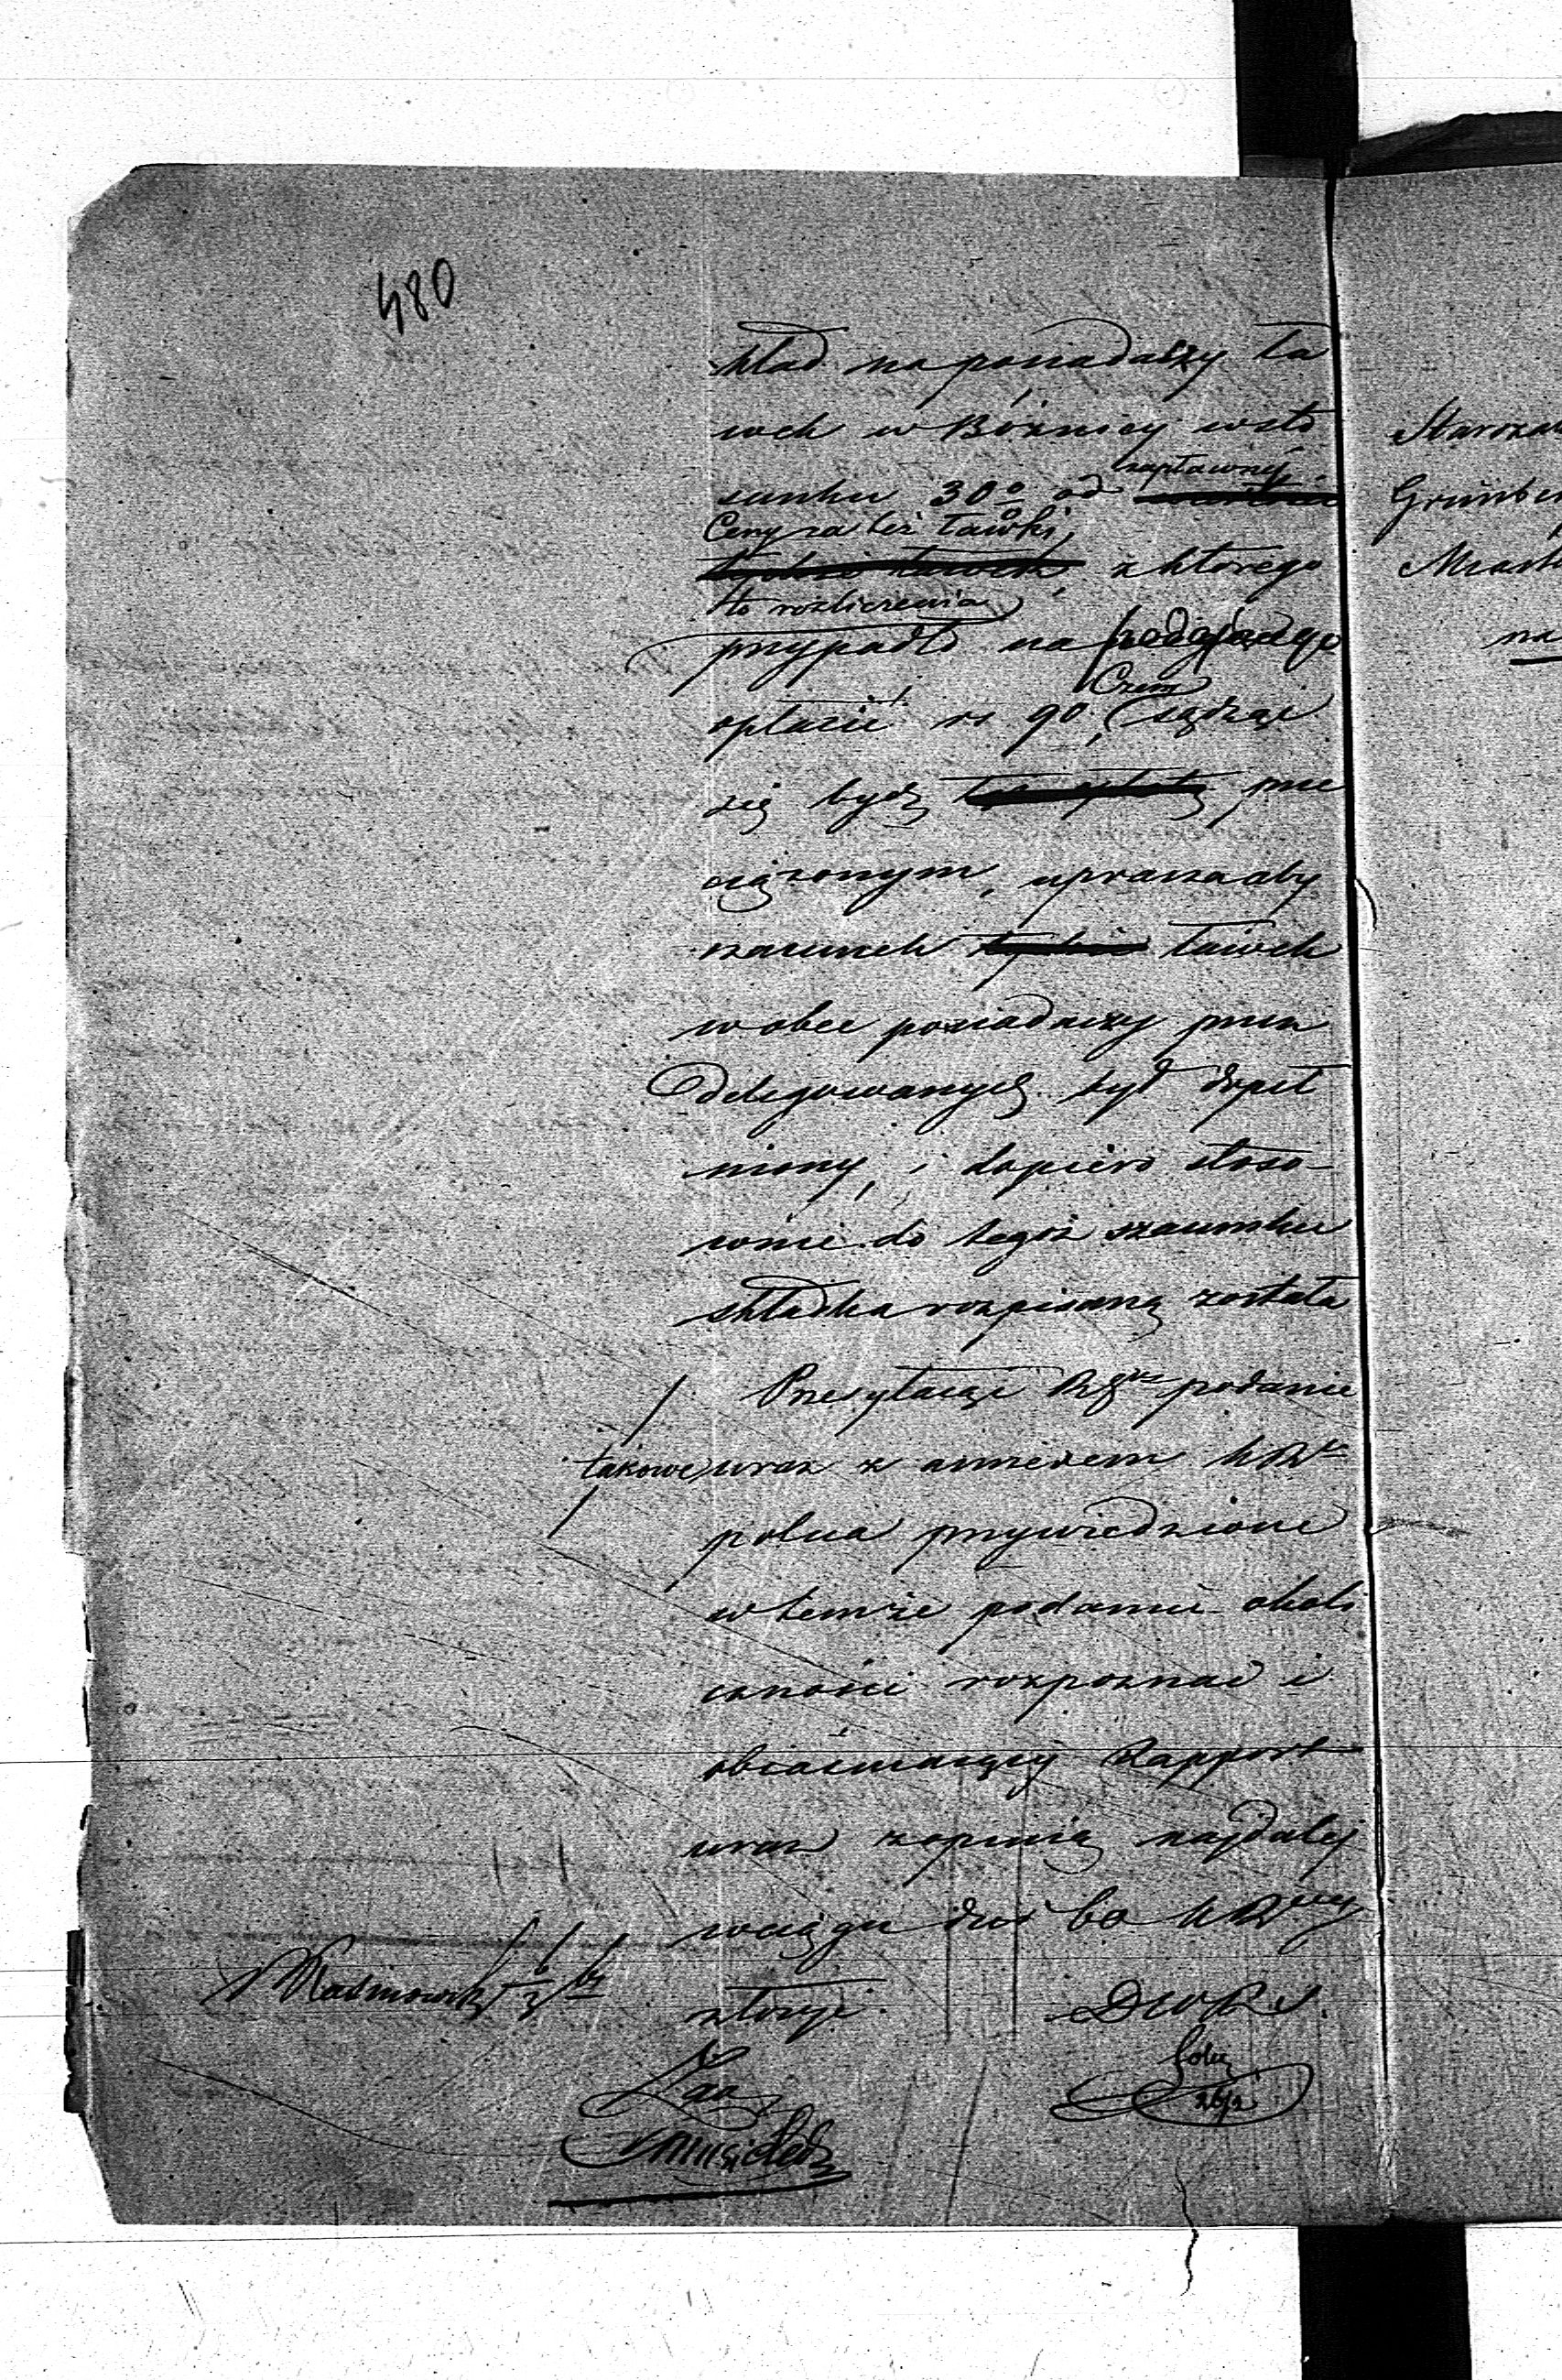 480
kład na posiadaczy ła
wek w Bóżnicy w sto
sunku 30% od zapłaconéj
Ceny za też ławki,
z którego
to rozliczenia
przypadło na podającego
opłacić rs 90, Czem sądząc
się bydź prze
ciążonym, uprasza aby
szacunek ławek
wobec posiadaczy przez
Delegowanych był dopeł
niony, i dopiero stoso-
wnie do tegoż szacunku
składka rozpisaną została
Przesyłając podanie
takowe wraz z annexem
poleca przywiedzione
w temże podaniu okoli
czności rozpoznać i
obiaśniaiący Rapport
wraz z opinią najdalej
w ciągu dni
złożył.
Staroza
Grünbe
Miasta
na